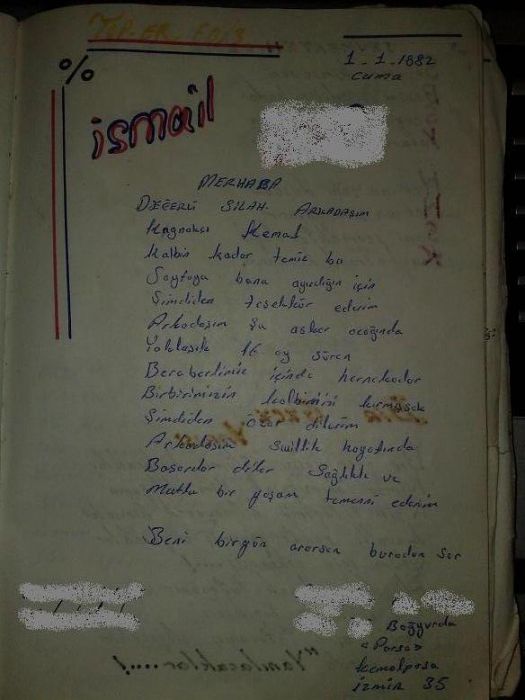 TOP. ER. 60/3
%
1-1-1882
cuma
ismail
MERHABA
DEĞERLİ SİLAH ARKADAŞIM
Kaynakcı Kemal
Kalbin kadar temiz bu
Sayfayı bana ayırdığın için
Şimdiden teşekkür ederim
Arkadaşım şu asker ocağında
Yaklaşık 16 ay süren
Beraberlimiz içinde hernekadar
Birbirimizin kalbimizi kırmışsek
Şimdiden Özür dilerim
Arkadaşım Sivillik hayatında
Başarılar diler Sağlıklı ve
Mutlu bir yaşam temenni ederim
Beni birgün ararsan buradan Sor
Bağyurdu
«Parsa»
kemalpaşa
izmir 35